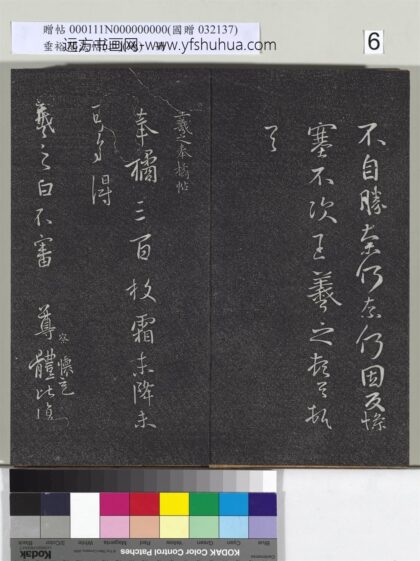 贈帖 000111N000000000(國贈 032137)
远方书画网-www.yfshuhua.com
6
不自勝奈何奈何因反慘
塞不次王羲之頓首頓
首
羲之奉橘帖
奉橘三百枚霜未降未
可多得
羲之白不審 尊體比復
Blue
Cyan
Green
Yellow
Red
Magenta
White
3/Color
Black
KODAK Color Control Patches
Kodak